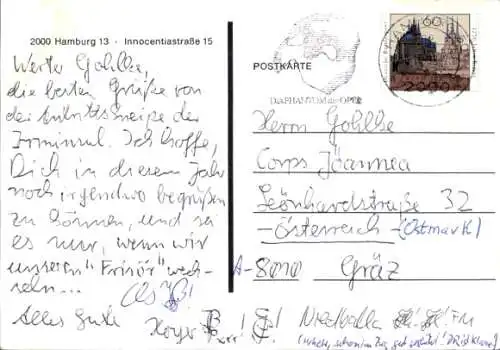 2000 Hamburg 13 · Innocentiastraße 15
Werter Gohlke,
die besten Grüße von
der Antrittskneipe der
Irminsul. Ich hoffe,
Dich in diesem Jahr
noch irgendwo begrüßen
zu können, und sei
es nur, wenn wir
unseren "Frisör" wech-
seln...
Alles Gute
Holger
60
2000
DAS PHANTOM DER OPER
POSTKARTE
Herrn Gohlke
Corps Joannea
Leonhardstraße 32
-Österreich- (Ostmark)
A-8010 Graz